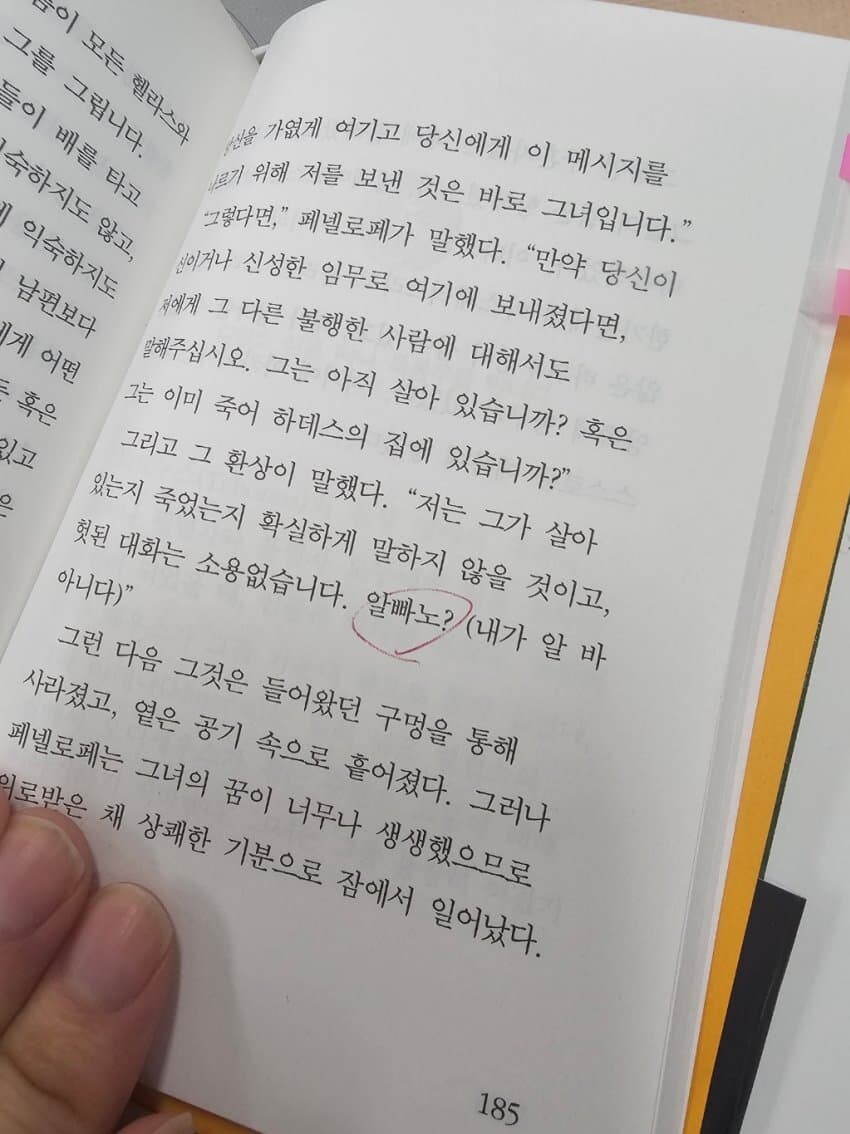 모든 헬라스와
그를 그립니다.
들이 배를 타고
익숙하지도 않고,
익숙하지도
남편보다
어떤
혹은
가엾게 여기고 당신에게 이 메시지를
위해 저를 보낸 것은 바로 그녀입니다.”
“그렇다면,” 페넬로페가 말했다. “만약 당신이
신이거나 신성한 임무로 여기에 보내졌다면,
저에게 그 다른 불행한 사람에 대해서도
말해주십시오. 그는 아직 살아 있습니까? 혹은
그는 이미 죽어 하데스의 집에 있습니까?”
그리고 그 환상이 말했다. “저는 그가 살아
있는지 죽었는지 확실하게 말하지 않을 것이고,
헛된 대화는 소용없습니다. 알빠노? (내가 알 바
아니다)”
그런 다음 그것은 들어왔던 구멍을 통해
사라졌고, 옅은 공기 속으로 흩어졌다. 그러나
페넬로페는 그녀의 꿈이 너무나 생생했으므로
위로받은 채 상쾌한 기분으로 잠에서 일어났다.
185